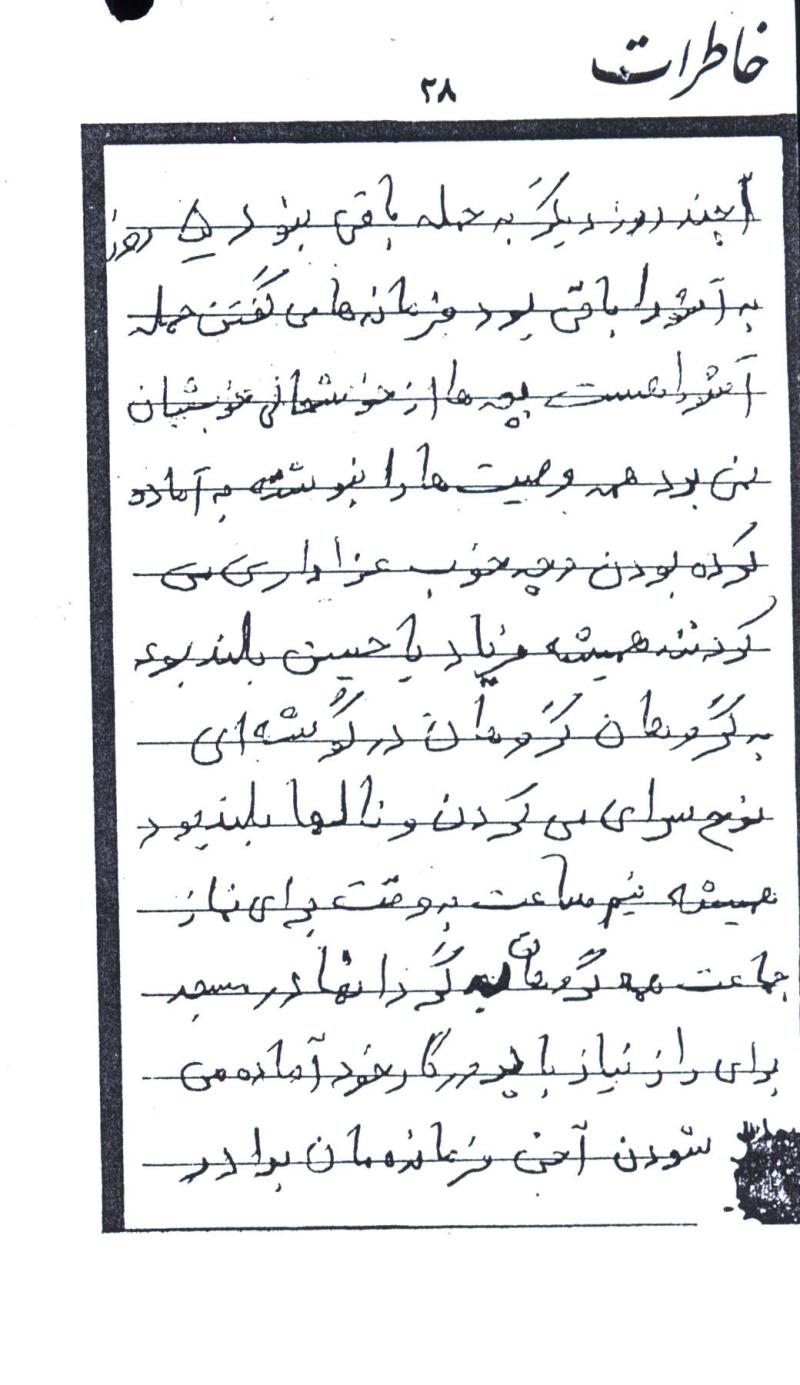 خاطرات
۲۸
چند روز دیگر به حمله باقی بود ۵ روز
به آشورا باقی بود فرمانه هامی گفتن حمله
آشورا هست بچه ها از خوشحالی
نمی بود همه وصیت ها را بنوشته به آماده
کرده بودن وچه خوب عزاداری می
کردند همیشه فریاد یا حسین بلند بود
به گروهان گروهان در گوشه ای
نوح سرای می کردن و نالها بلند بود
همیشه نیم ساعت به وقت برای نماز
جماعت همه گروهان گردانها در مسجد
برای راز نیاز با پرورگار خود آماده می
شودن آخی فرمانده مان برادر